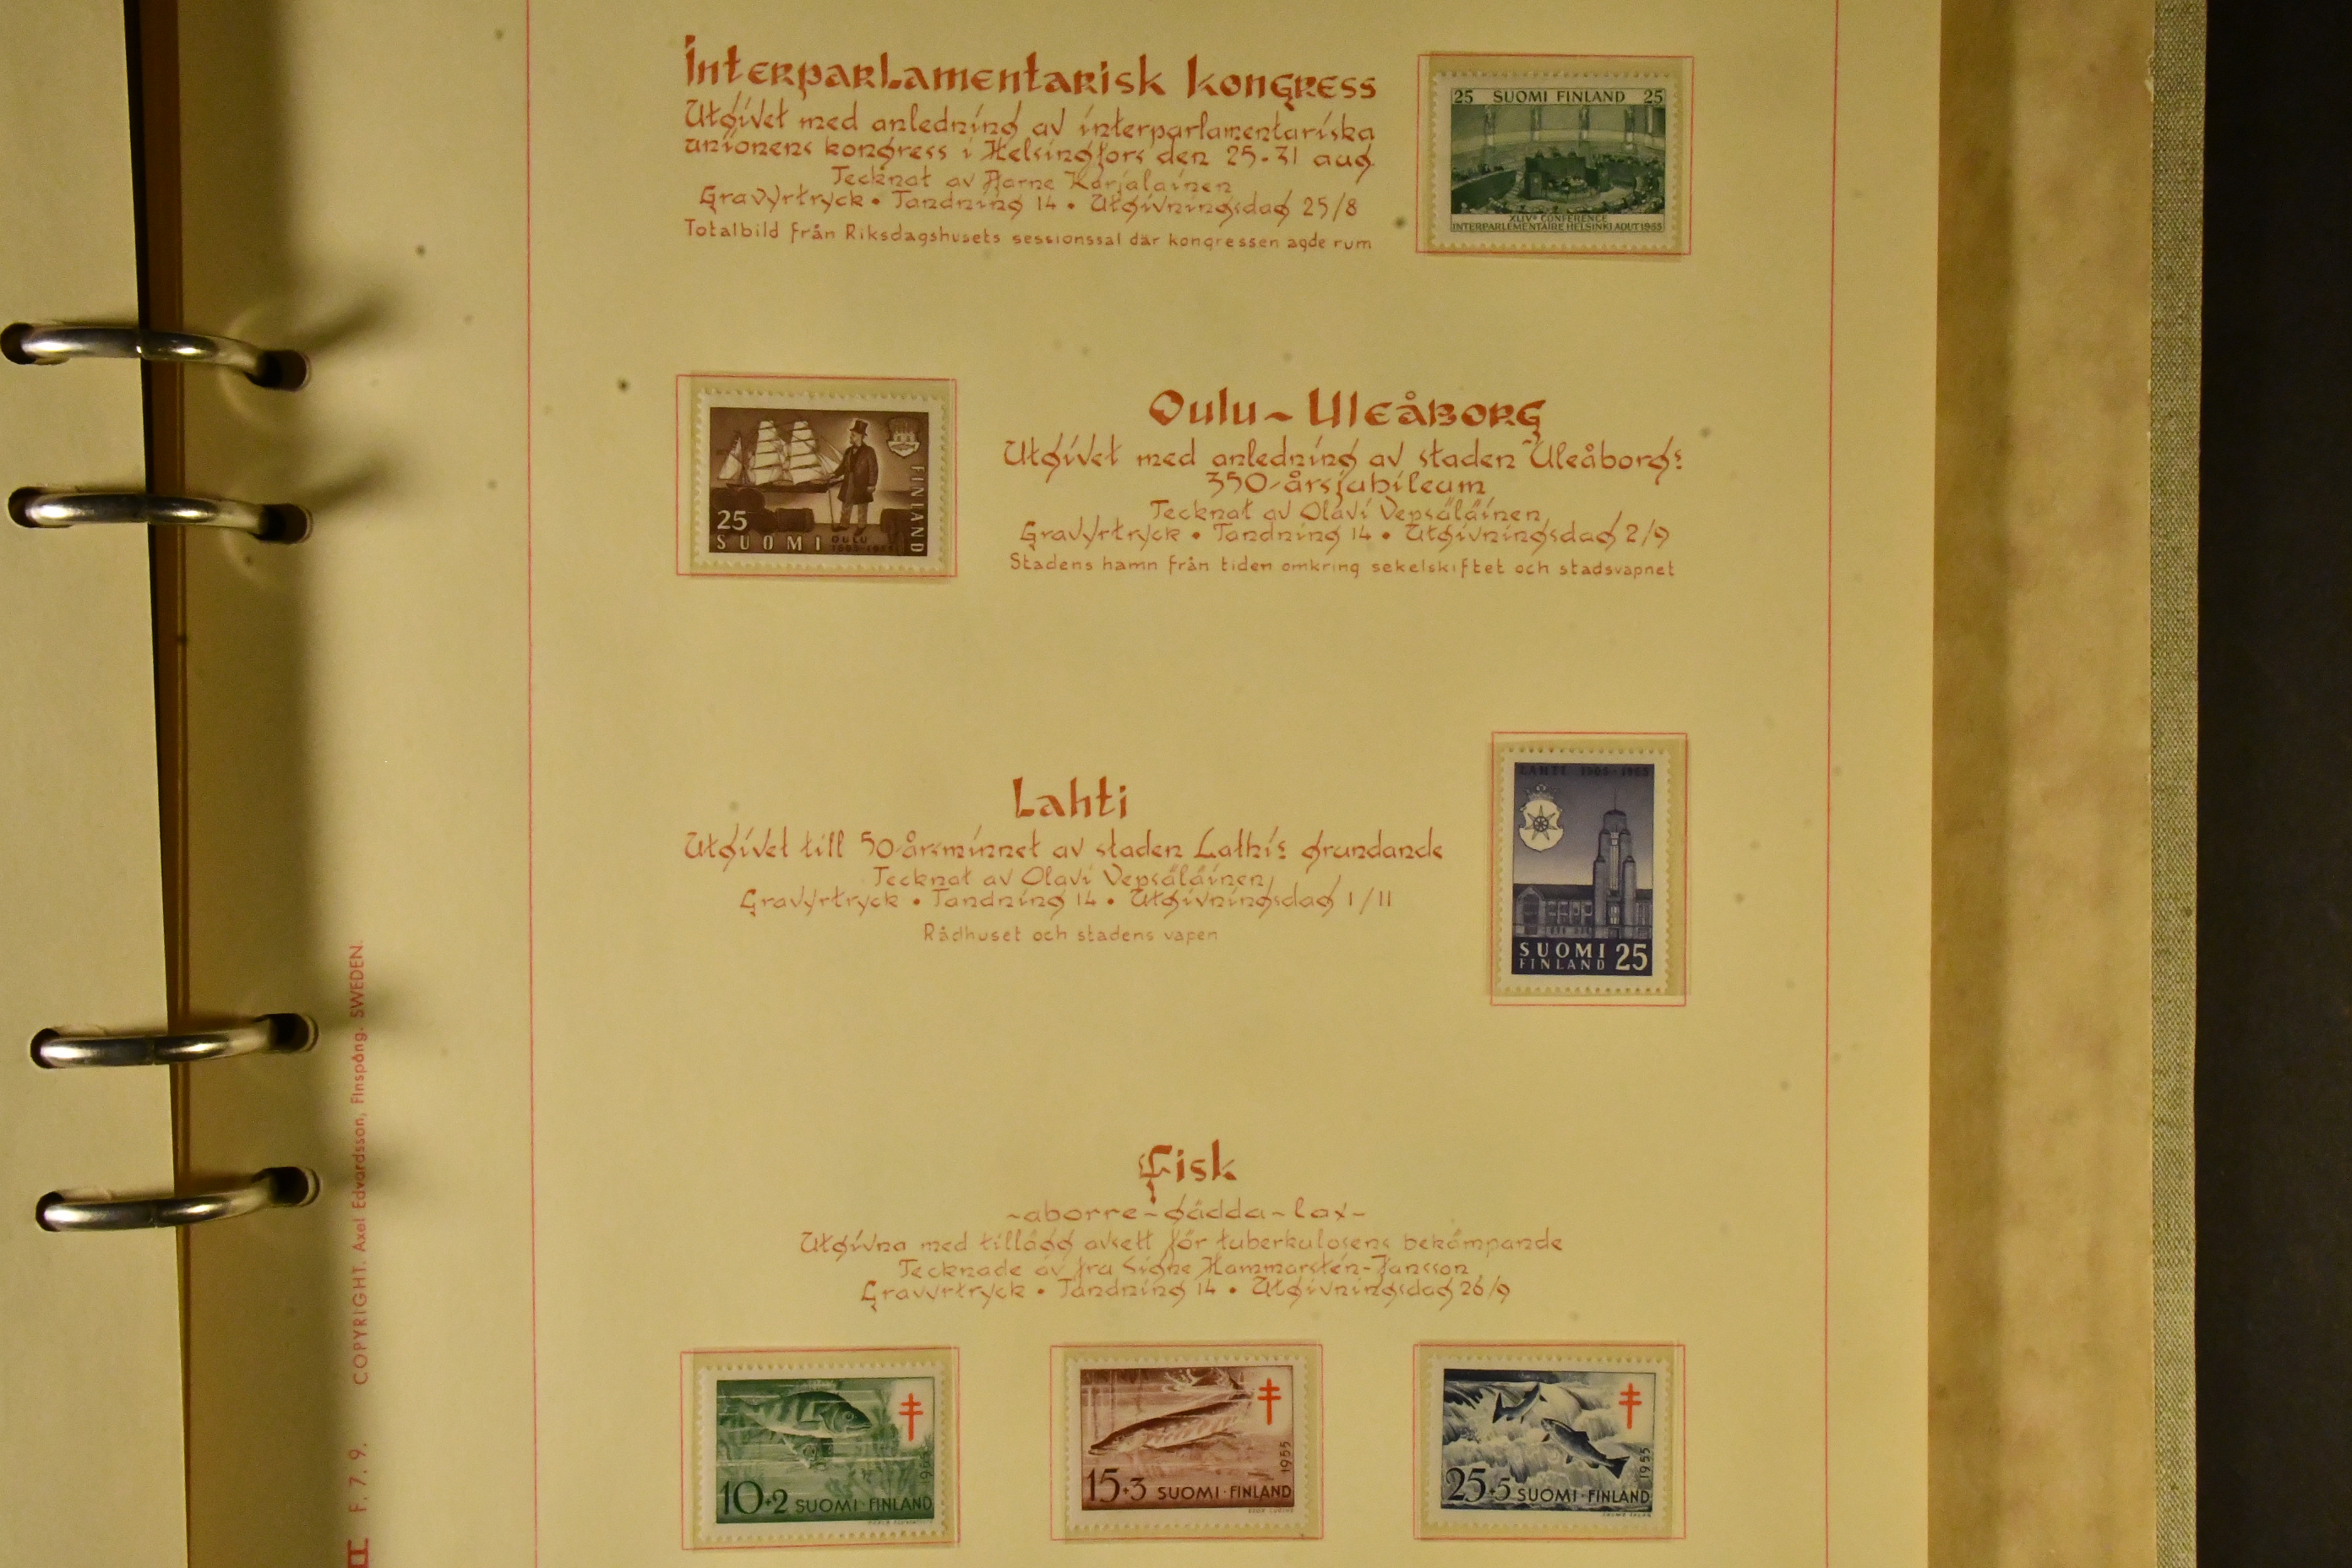 Interparlamentarisk kongress
Utgivet med anledning av interparlamentariska
unionens kongress i Helsingfors den 25-31 aug.
Tecknat av Aarne Karjalainen
Gravyrtryck • Tandning 14 • Utgivningsdag 25/8
Totalbild från Riksdagshusets sessionssal där kongressen ägde rum
25 SUOMI FINLAND 25
XLIVe CONFERENCE
INTERPARLEMENTAIRE HELSINKI AOUT 1955
Oulu~Uleåborg
Utgivet med anledning av staden Uleåborgs
350-årsjubileum
Tecknat av Olavi Vepsäläinen
Gravyrtryck • Tandning 14 • Utgivningsdag 2/9
Stadens hamn från tiden omkring sekelskiftet och stadsvapnet
25
SUOMI
FINLAND
OULU
1605-1955
Lahti
Utgivet till 50-årsminnet av staden Lathis grundande
Tecknat av Olavi Vepsäläinen
Gravyrtryck • Tandning 14 • Utgivningsdag 1/11
Rådhuset och stadens vapen
LAHTI 1905-1955
SUOMI
FINLAND 25
Fisk
~aborre~gädda~lax~
Utgivna med tillägg avsett för tuberkulosens bekämpande
Tecknade av fru Signe Hammarstén-Jansson
Gravyrtryck • Tandning 14 • Utgivningsdag 26/9
10+2 SUOMI·FINLAND
1955
15+3 SUOMI·FINLAND
1955
25+5 SUOMI·FINLAND
1955
II F. 7. 9. COPYRIGHT. Axel Edvardsson, Finspång. SWEDEN.